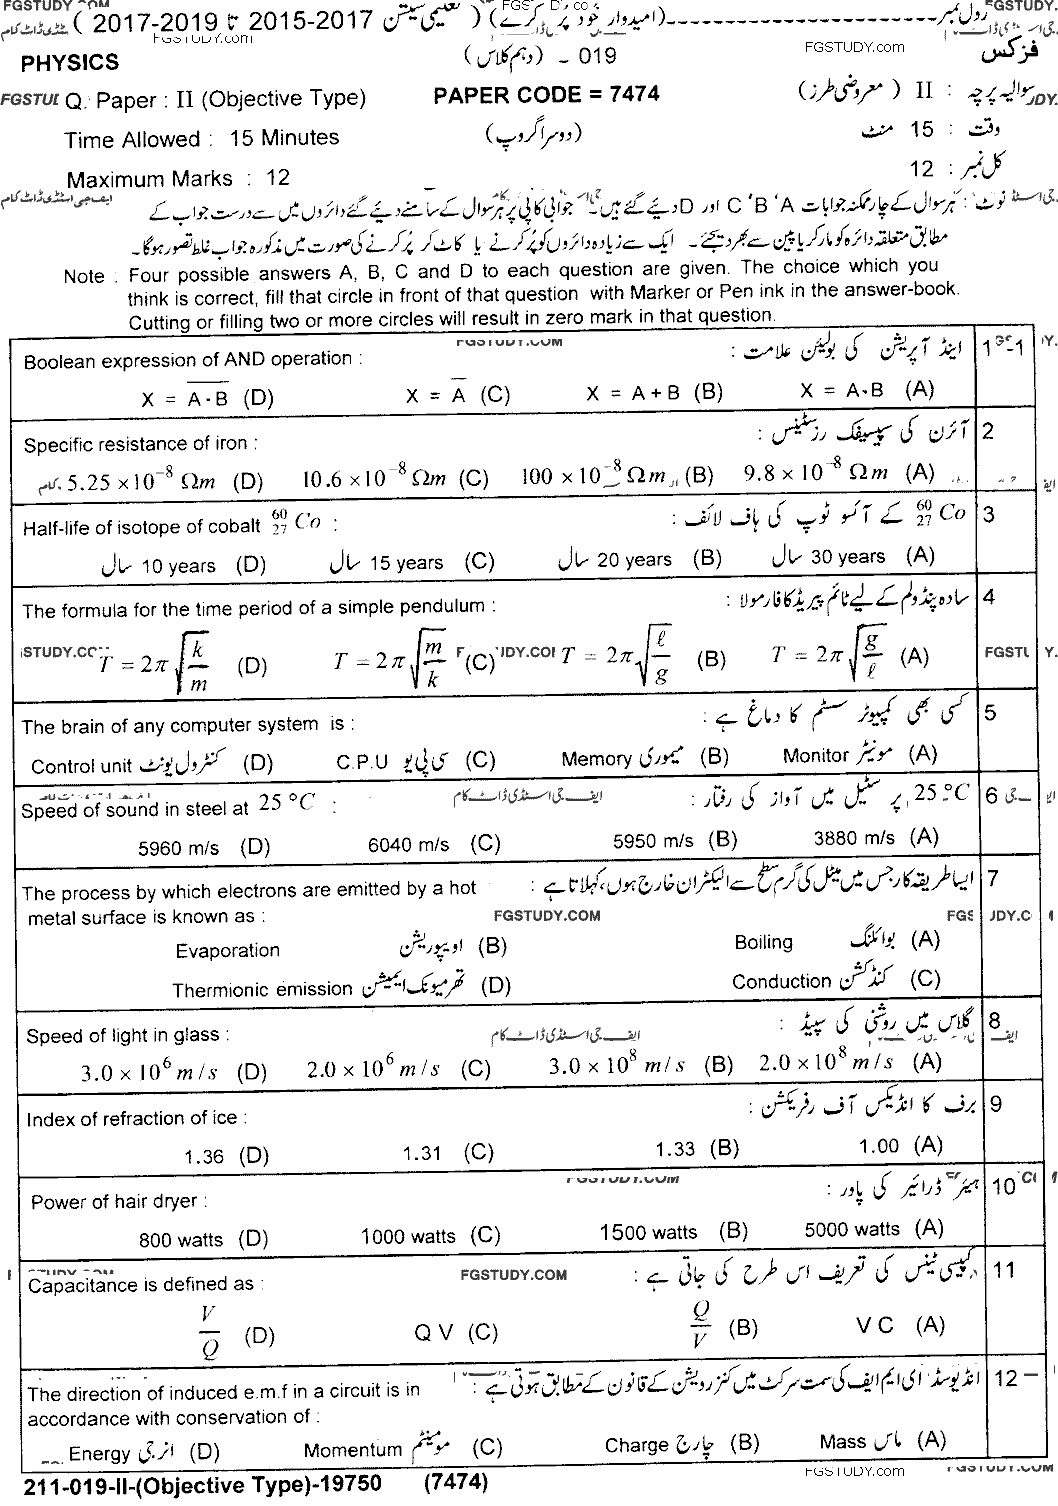 FGSTUDY.COM
رول نمبر (امیدوار خود پُر کرے) ( تعلیمی سیشن 2015-2017 تا 2017-2019 )
FGSTUDY.com
FGSTUDY.com
PHYSICS 019 - (دہم کلاس) فزکس
Q. Paper : II (Objective Type) PAPER CODE = 7474 سوالیہ پرچہ : II ( معروضی طرز)
Time Allowed : 15 Minutes (دوسرا گروپ) وقت : 15 منٹ
Maximum Marks : 12 کل نمبر : 12
نوٹ : ہر سوال کے چار ممکنہ جوابات A ' B ' C اور D دئیے گئے ہیں۔ جوابی کاپی پر ہر سوال کے سامنے دئیے گئے دائروں میں سے درست جواب کے
مطابق متعلقہ دائرہ کو مارکر یا پین سے بھر دیجئے۔ ایک سے زیادہ دائروں کو پُر کرنے یا کاٹ کر پُر کرنے کی صورت میں مذکورہ جواب غلط تصور ہوگا۔
Note : Four possible answers A, B, C and D to each question are given. The choice which you
think is correct, fill that circle in front of that question with Marker or Pen ink in the answer-book.
Cutting or filling two or more circles will result in zero mark in that question.
FGSTUDY.COM
Boolean expression of AND operation : اینڈ آپریشن کی بولیئن علامت : 1-1
X = \overline{A · B} (D) X = \overline{A} (C) X = A + B (B) X = A · B (A)
Specific resistance of iron : آئرن کی سپیسیفک رزسٹینس : 2
5.25 × 10⁻⁸ Ωm (D) 10.6 × 10⁻⁸ Ωm (C) 100 × 10⁻⁸ Ωm (B) 9.8 × 10⁻⁸ Ωm (A)
Half-life of isotope of cobalt ⁶⁰₂₇Co : ⁶⁰₂₇Co کے آئسوٹوپ کی ہاف لائف : 3
10 years سال (D) 15 years سال (C) 20 years سال (B) 30 years سال (A)
The formula for the time period of a simple pendulum : سادہ پنڈولم کے لیے ٹائم پیریڈ کا فارمولا : 4
T = 2π√(k/m) (D) T = 2π√(m/k) (C) T = 2π√(ℓ/g) (B) T = 2π√(g/ℓ) (A)
The brain of any computer system is : کسی بھی کمپیوٹر سسٹم کا دماغ ہے : 5
Control unit کنٹرول یونٹ (D) C.P.U سی پی یو (C) Memory میموری (B) Monitor مونیٹر (A)
Speed of sound in steel at 25 °C : ایف جی اسٹڈی ڈاٹ کام 25 °C پر سٹیل میں آواز کی رفتار : 6
5960 m/s (D) 6040 m/s (C) 5950 m/s (B) 3880 m/s (A)
The process by which electrons are emitted by a hot ایسا طریقہ کار جس میں میٹل کی گرم سطح سے الیکٹران خارج ہوں، کہلاتا ہے : 7
metal surface is known as : FGSTUDY.COM
Evaporation اویپوریشن (B) Boiling بوائلنگ (A)
Thermionic emission تھرمیونک ایمیشن (D) Conduction کنڈکشن (C)
Speed of light in glass : ایف جی اسٹڈی ڈاٹ کام گلاس میں روشنی کی سپیڈ : 8
3.0 × 10⁶ m/s (D) 2.0 × 10⁶ m/s (C) 3.0 × 10⁸ m/s (B) 2.0 × 10⁸ m/s (A)
Index of refraction of ice : برف کا انڈیکس آف رفریکشن : 9
1.36 (D) 1.31 (C) 1.33 (B) 1.00 (A)
FGSTUDY.COM
Power of hair dryer : ہیئر ڈرائیر کی پاور : 10
800 watts (D) 1000 watts (C) 1500 watts (B) 5000 watts (A)
Capacitance is defined as : FGSTUDY.COM کپیسی ٹینس کی تعریف اس طرح کی جاتی ہے : 11
V/Q (D) Q V (C) Q/V (B) V C (A)
The direction of induced e.m.f in a circuit is in انڈیوسڈ ای ایم ایف کی سمت سرکٹ میں کنزرویشن کے قانون کے مطابق ہوتی ہے : 12
accordance with conservation of :
Energy انرجی (D) Momentum مومینٹم (C) Charge چارج (B) Mass ماس (A)
211-019-II-(Objective Type)-19750 (7474)
FGSTUDY.com